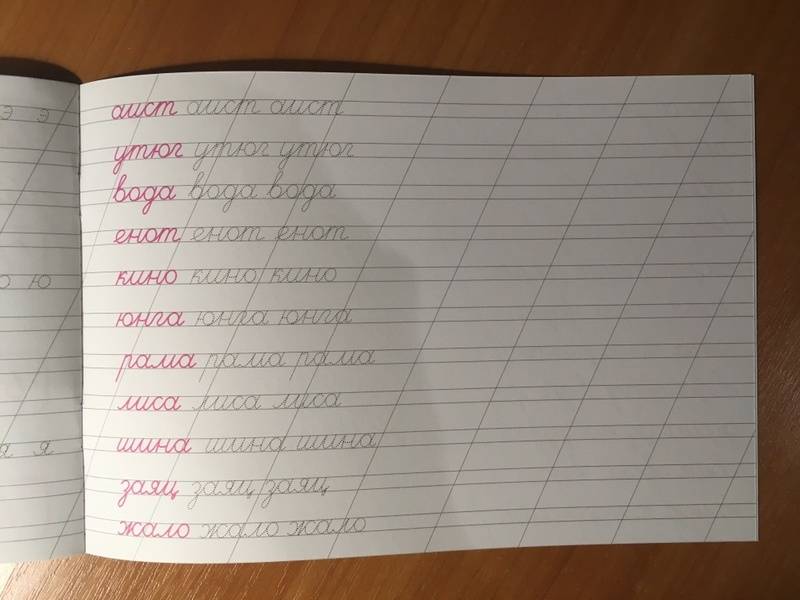 э э
аист аист аист
утюг утюг утюг
вода вода вода
енот енот енот
кино кино кино
ю ю
юнга юнга юнга
рама рама рама
лиса лиса лиса
я я
шина шина шина
заяц заяц заяц
жало жало жало